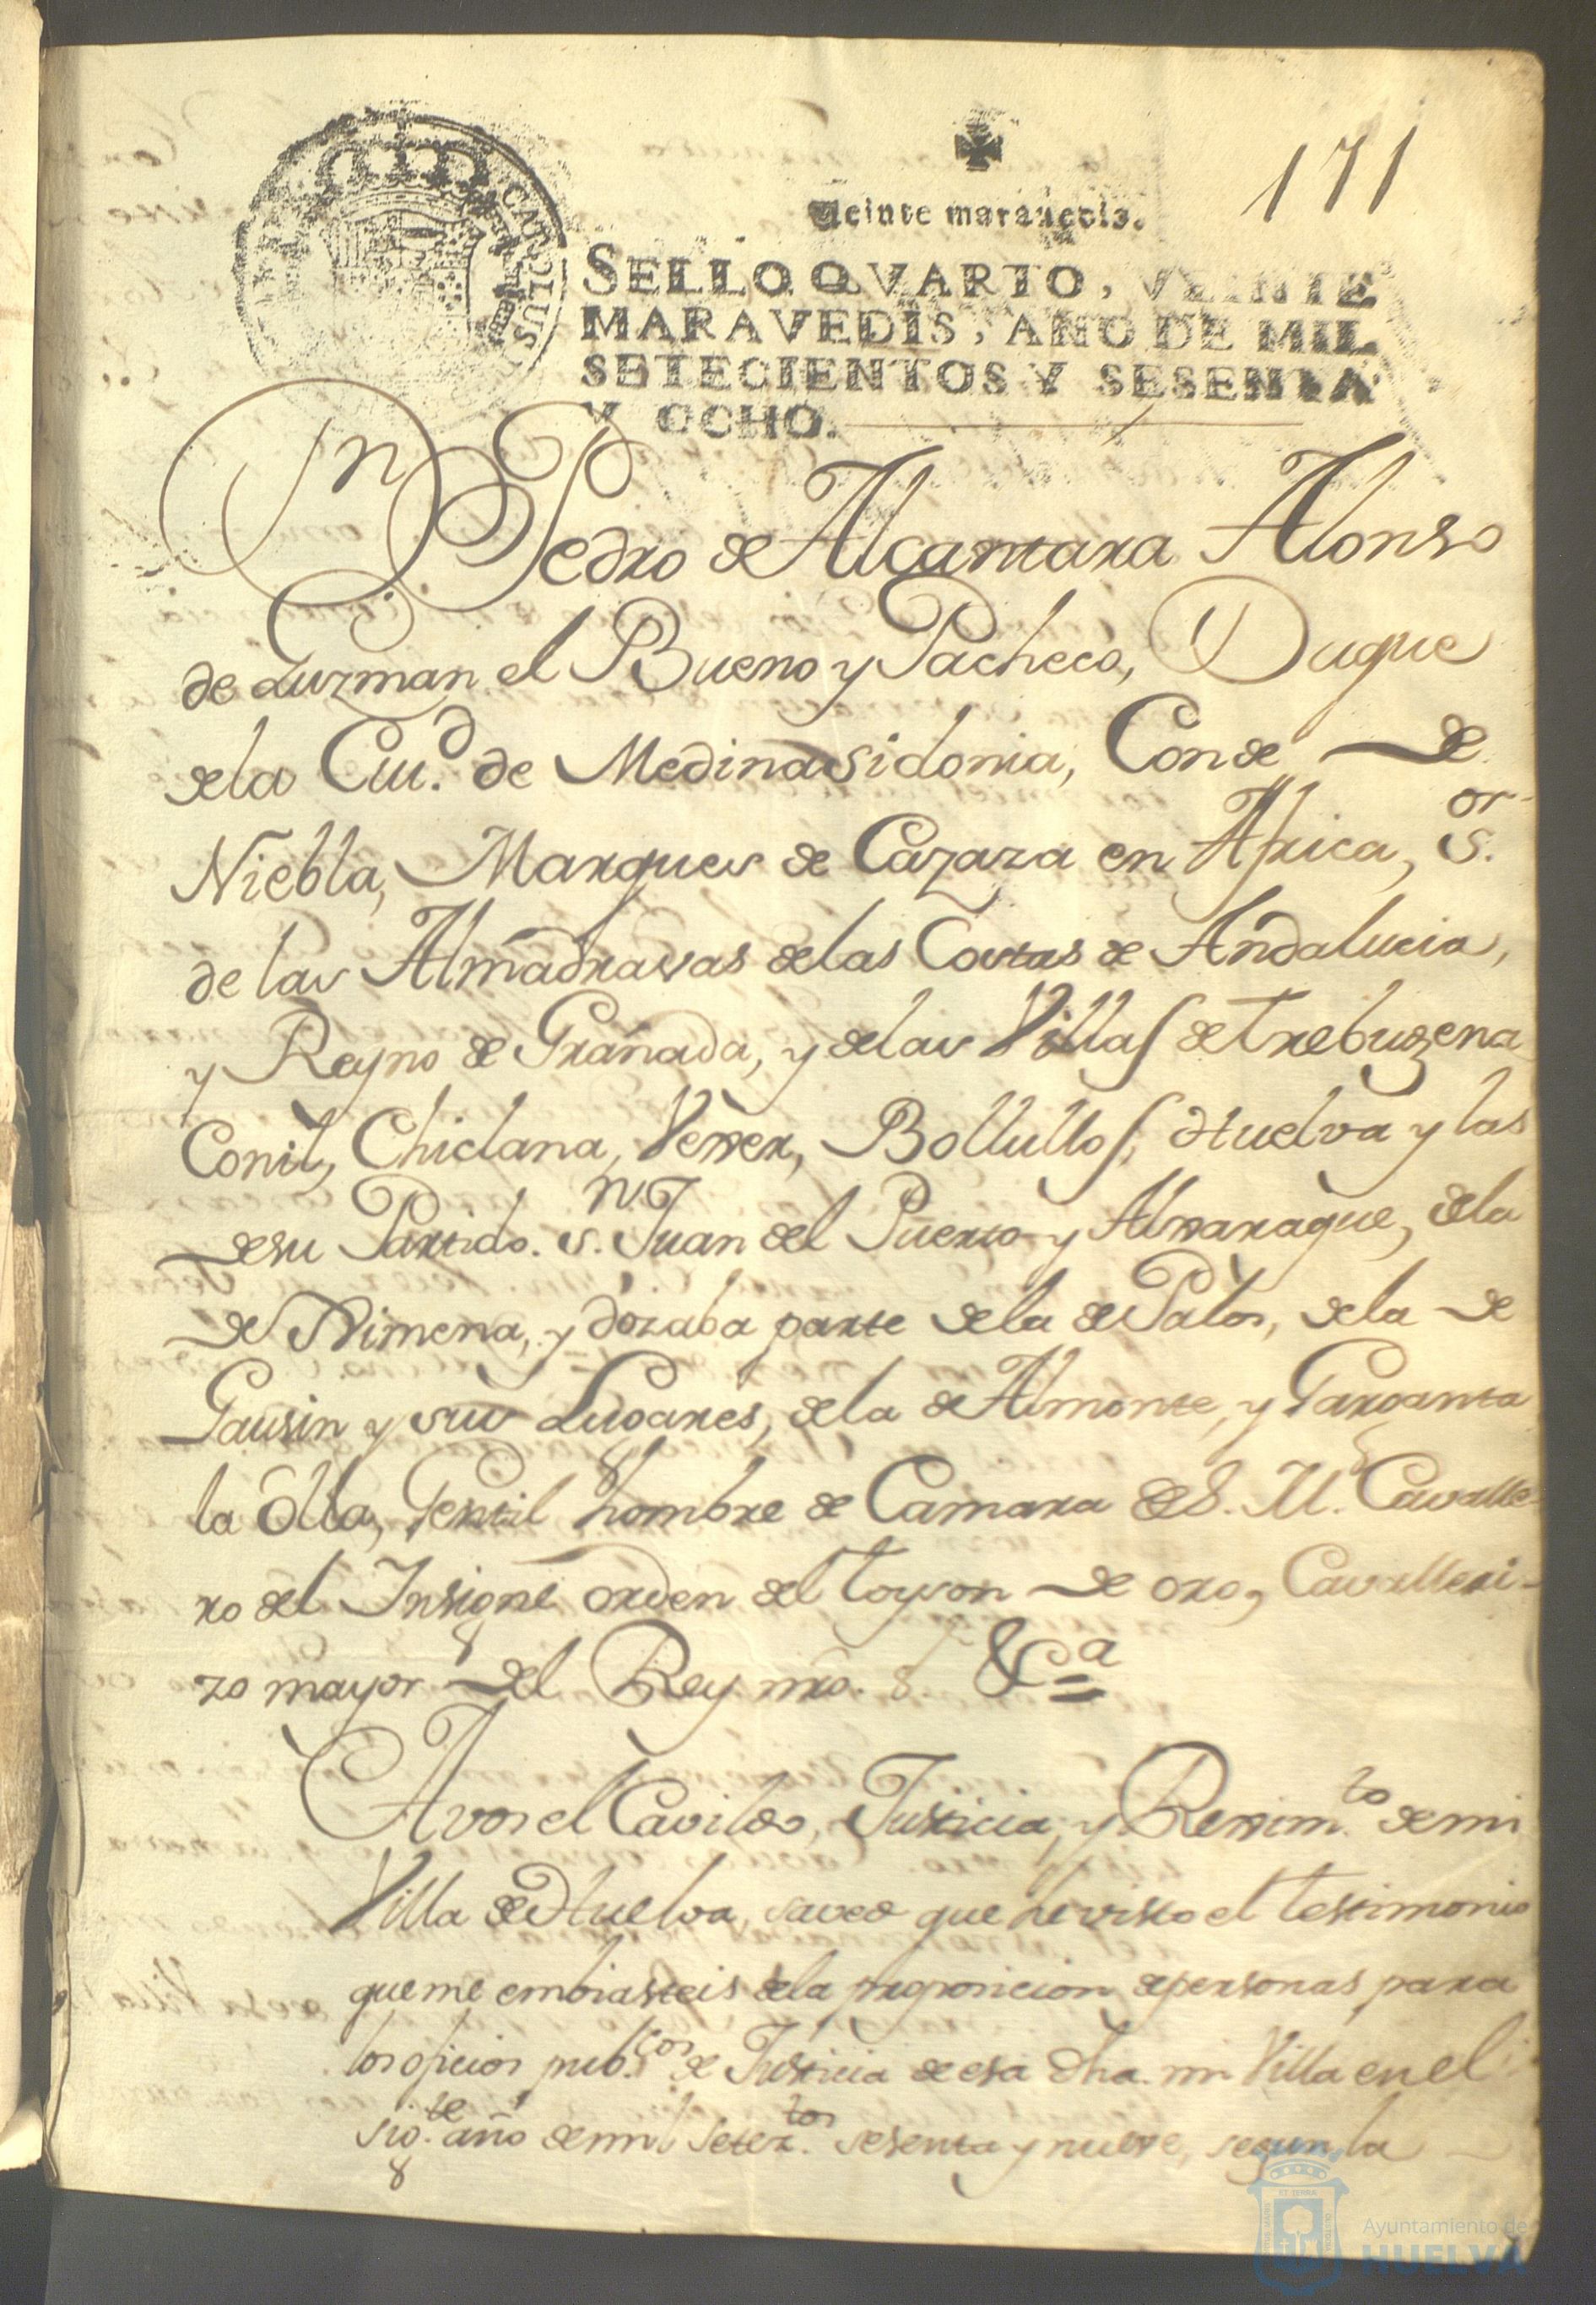 171
Veinte maravedis.
SELLO QVARTO, VEINTE
MARAVEDIS, AÑO DE MIL
SETECIENTOS Y SESENTA
Y OCHO.
Dn Pedro de Alcantara Alonso
de Guzman el Bueno y Pacheco, Duque
de la Ciu.d de Medinasidonia, Conde de
Niebla, Marques de Cazaza en Africa, S.or
de las Almadravas de las Costas de Andalucia,
y Reyno de Granada, y de las Villas de Trebugena
Conil, Chiclana, Vexer, Bollullos, Huelva y las
de su Partido. S.n Juan del Puerto y Alxaraque, de la
de Ximena, y dozaba parte de la de Palos, de la de
Gausin y sus Lugares, de la de Almonte, y Garganta
la Olla, Gentil hombre de Camara de S. M. Cavalle-
ro del Insigne orden del Toyson de oro, Cavalleri-
zo mayor del Rey nro. S. &ca
A vos el Cavildo, Justicia, y Reximto. de mi
Villa de Huelva, saved que he visto el testimonio
que me embiasteis de la proposicion de personas para
los oficios pub.cos de Justicia de esa dha. mi Villa en el
sig.te año de mil setez.tos sesenta y nueve, segun la
Ayuntamiento de
HUELVA